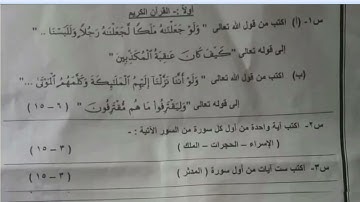 أولاً :- القرآن الكريم
س١- (أ) اكتب من قول الله تعالى " وَلَوْ جَعَلْنَٰهُ مَلَكًا لَّجَعَلْنَٰهُ رَجُلًا وَلَلَبَسْنَا .. "
إلى قوله تعالى " كَيْفَ كَانَ عَٰقِبَةُ الْمُكَذِّبِينَ "
(ب) اكتب من قول الله تعالى " وَلَوْ أَنَّنَا نَزَّلْنَا إِلَيْهِمُ الْمَلَٰٓئِكَةَ وَكَلَّمَهُمُ الْمَوْتَىٰ ... "
إلى قوله تعالى " وَلِيَقْتَرِفُوا مَا هُم مُّقْتَرِفُونَ " ( ٦ - ١٥ )
س٢- اكتب آية واحدة من أول كل سورة من السور الآتية :-
( الإسراء - الحجرات - الملك ) ( ٣ - ١٥ )
س٣- اكتب ست آيات من أول سورة ( المدثر ) ( ٣ - ١٥ )